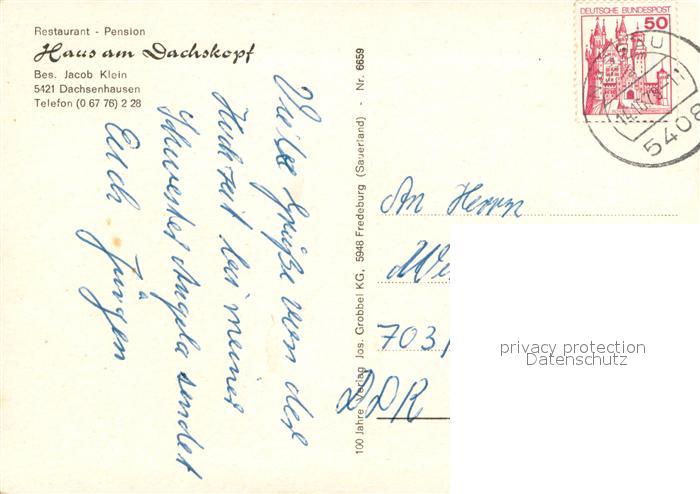 Restaurant - Pension
Haus am Dachskopf
Bes. Jacob Klein
5421 Dachsenhausen
Telefon (0 67 76) 2 28
Viele Grüße von der
Hochzeit bei meiner
Schwester Angela sendet
Euch Jürgen
100 Jahre Verlag Jos. Grobbel KG, 5948 Fredeburg (Sauerland) - Nr. 6659
DEUTSCHE BUNDESPOST
50
5408
An Herrn
703
DDR
privacy protection
Datenschutz